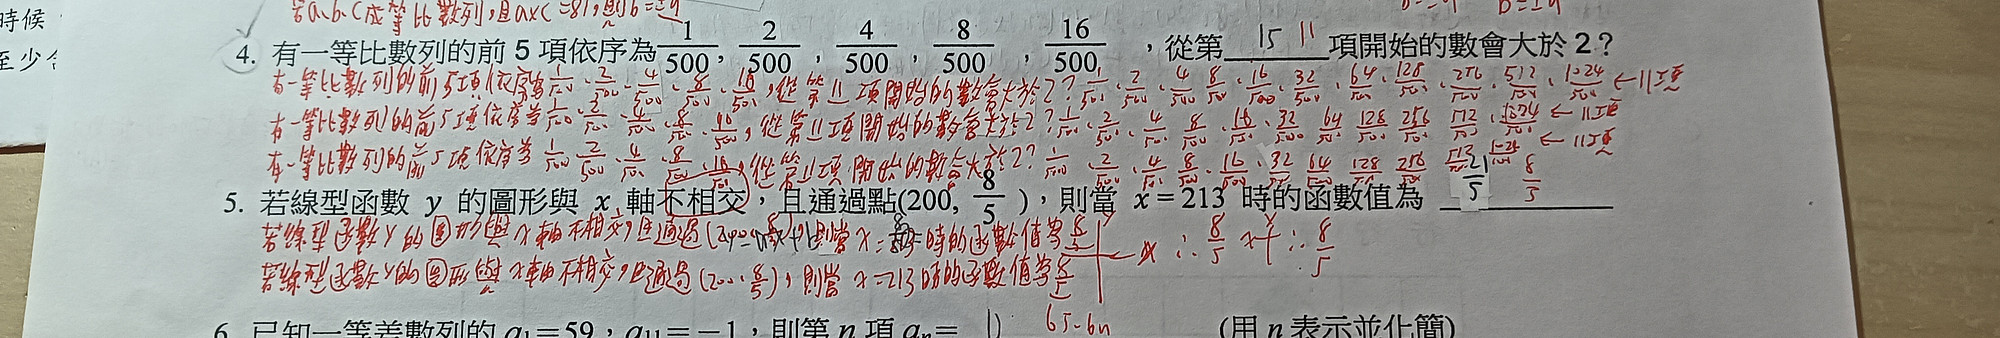 若a、b、c成等比數列,且axc=81,則b=±9
時候
至少含
4. 有一等比數列的前 5 項依序為 1/500, 2/500, 4/500, 8/500, 16/500 ,從第 15 11 項開始的數會大於 2?
有一等比數列的前5項依序為 1/500、2/500、4/500、8/500、16/500,從第11項開始的數會大於2? 1/500、2/500、4/500、8/500、16/500、32/500、64/500、128/500、256/500、512/500、1024/500 ←11項
有一等比數列的前5項依序為 1/500、2/500、4/500、8/500、16/500,從第11項開始的數會大於2? 1/500、2/500、4/500、8/500、16/500、32/500、64/500、128/500、256/500、512/500、1024/500 ←11項
有一等比數列的前5項依序為 1/500、2/500、4/500、8/500、16/500,從第11項開始的數會大於2? 1/500、2/500、4/500、8/500、16/500、32/500、64/500、128/500、256/500、512/500、1024/500 ←11項
5. 若線型函數 y 的圖形與 x 軸不相交,且通過點(200, 8/5 ),則當 x = 213 時的函數值為 21/5 8/5
若線型函數y的圖形與x軸不相交,且通過(200,則當x= 時的函數值為 8/5 ∴ 8/5 ∴ 8/5
若線型函數y的圖形與x軸不相交,且通過(200、8/5),則當x=213時的函數值為 8/5
6. 已知一等差數列的 a₁=59,a₁₁=-1,則第 n 項 aₙ= 65-6n (用 n 表示並化簡)